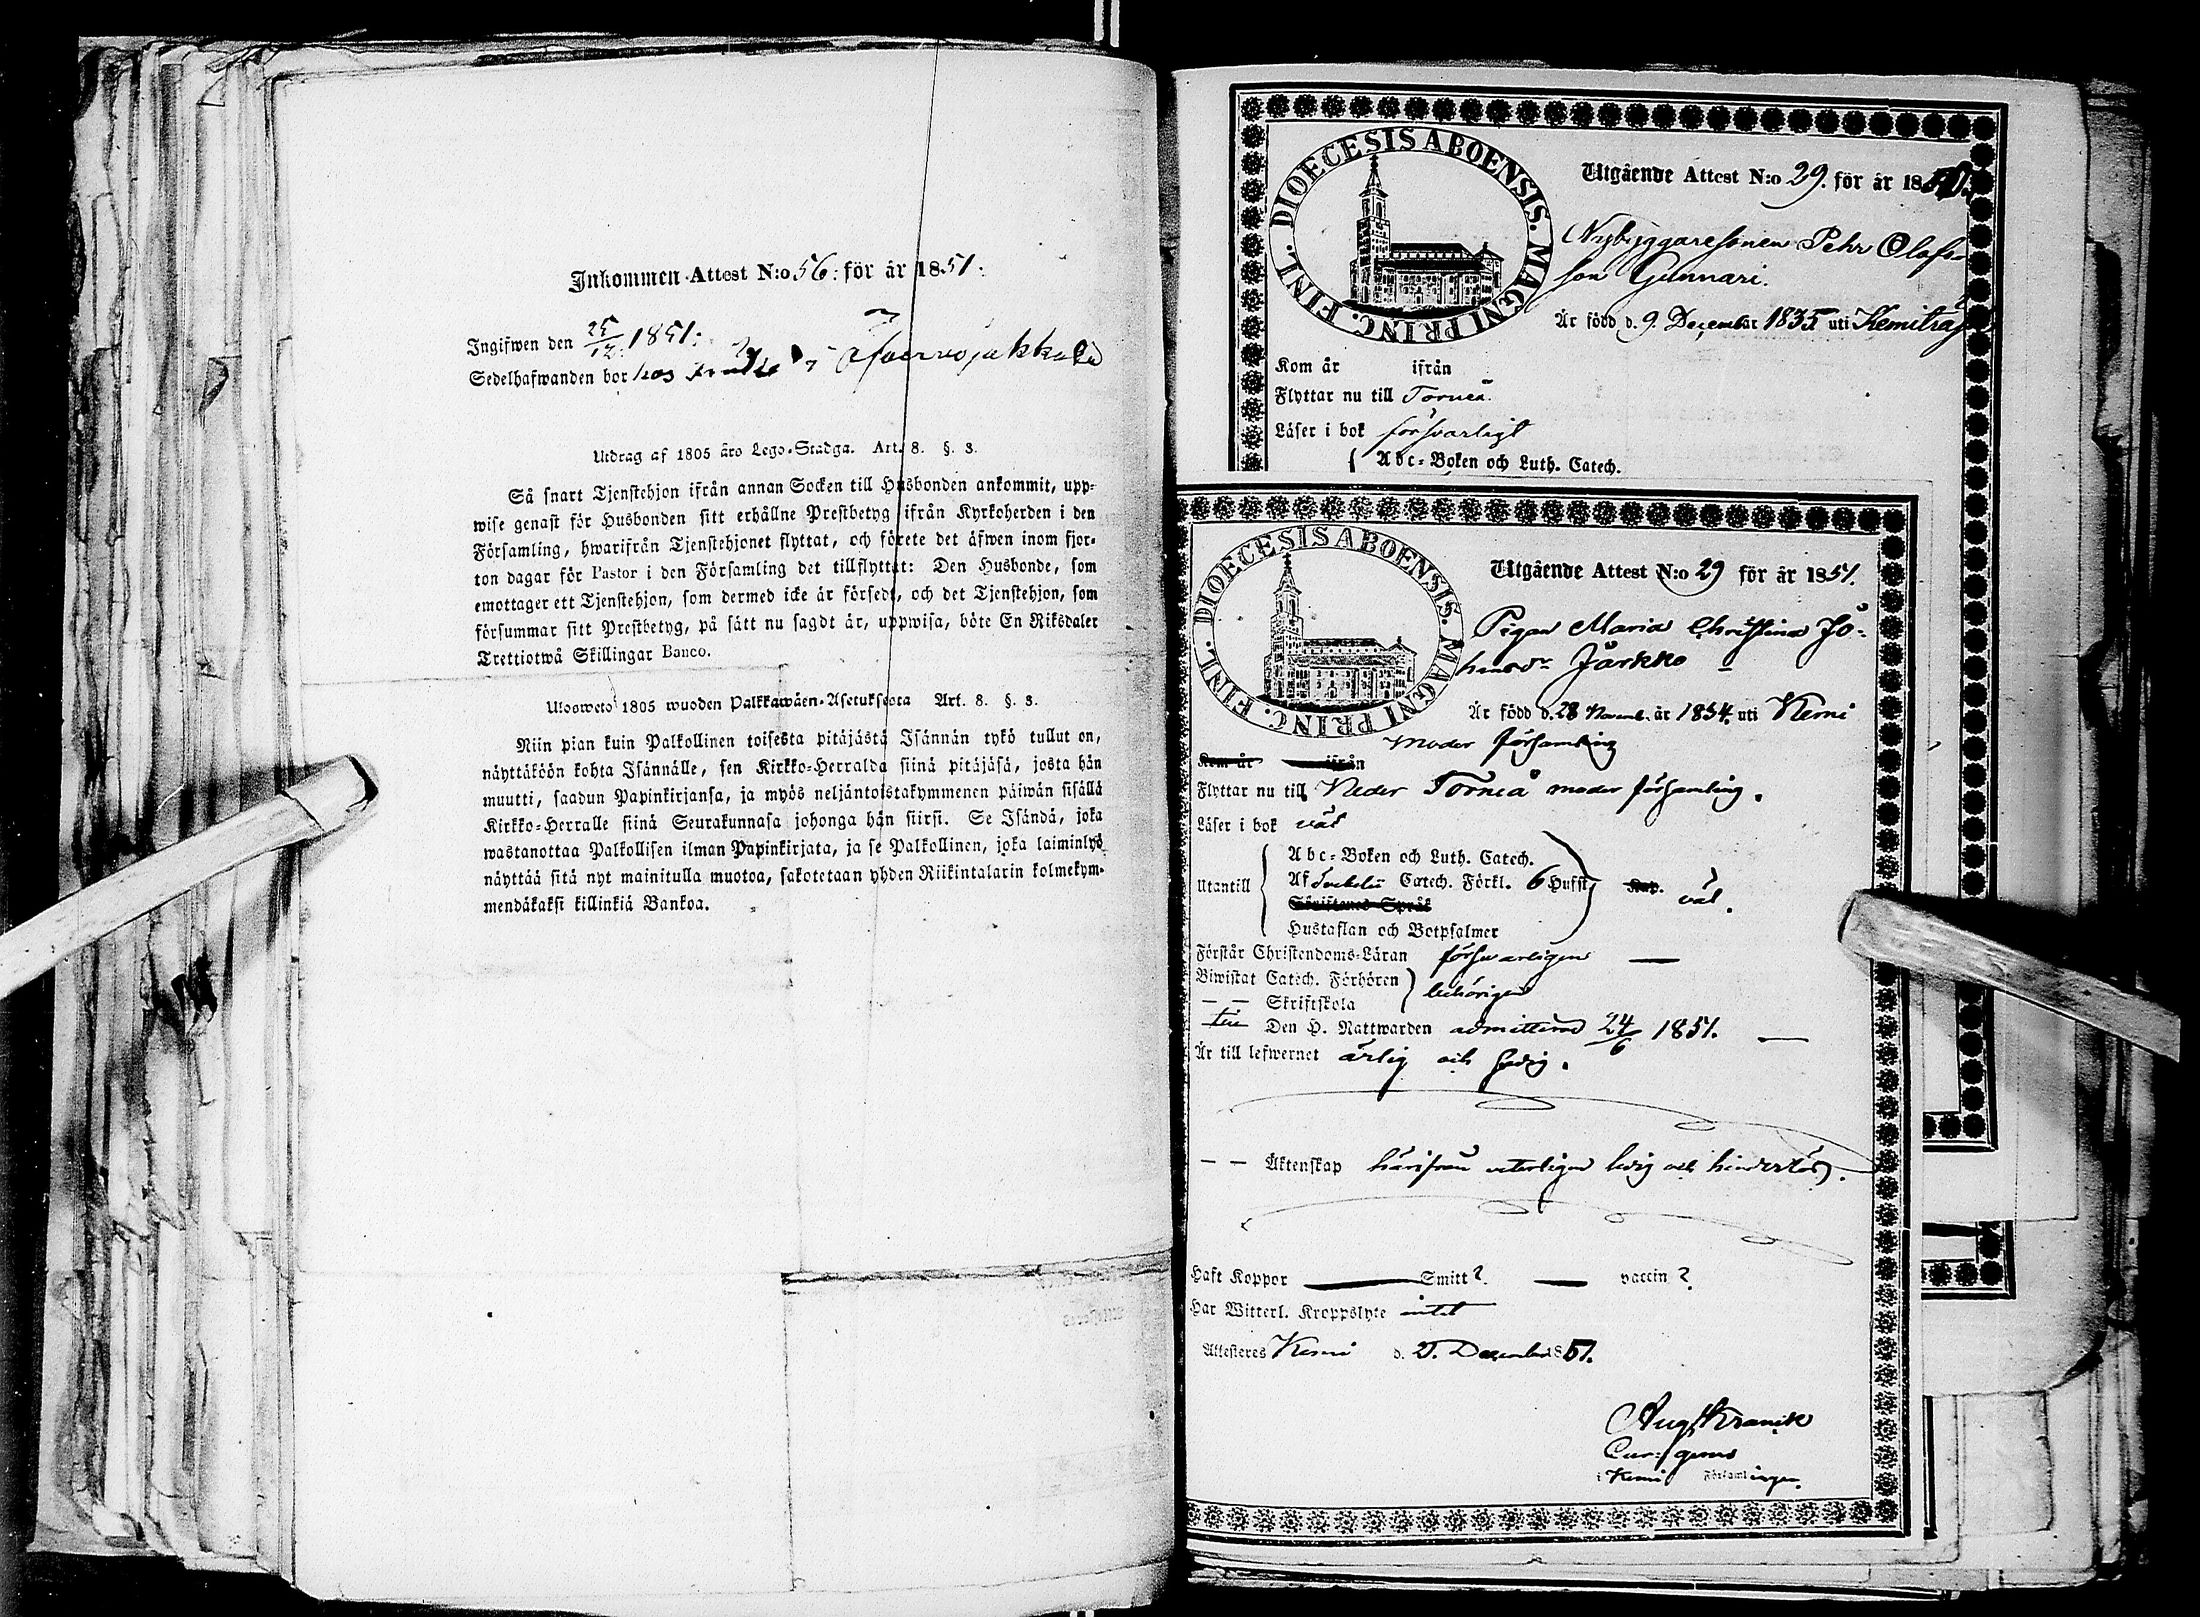 Inkommen Attest N:o 56: för år 1851:
Ingifwen den 25/12: 1851:
Sedelhafwanden bor hos
Utdrag af 1805 års Lego-Stadga. Art. 8. §. 3.
Så snart Tjenstehjon ifrån annan Socken till Husbonden ankommit, upp-
wise genast för Husbonden sitt erhållne Prestbetyg ifrån Kyrkoherden i den
Församling, hwarifrån Tjenstehjonet flyttat, och förete det äfwen inom fjor-
ton dagar för Pastor i den Församling det tillflyttat: Den Husbonde, som
emottager ett Tjenstehjon, som dermed icke är försedt, och det Tjenstehjon, som
försummar sitt Prestbetyg, på sätt nu sagdt är, uppwisa, böte En Riksdaler
Trettiotwå Skillingar Banco.
Ulosweto 1805 wuoden Palkkawäen-Asetuksesta Art. 8. §. 3.
Niin pian kuin Palkollinen toisesta pitäjästä Isännän tykö tullut on,
näyttäköön kohta Isännälle, sen Kirkko-Herralda siinä pitäjäsä, josta hän
muutti, saadun Papinkirjansa, ja myös neljäntoistakymmenen päiwän sisällä
Kirkko-Herralle siinä Seurakunnasa johonga hän siirsi. Se Isändä, joka
wastanottaa Palkollisen ilman Papinkirjata, ja se Palkollinen, joka laiminlyö
näyttää sitä nyt mainitulla muotoa, sakotetaan yhden Riikintalarin kolmekym-
mendäkaksi killinkiä Bankoa.
DIOECESIS ABOENSIS. MAGNI PRINC. FINL.
Utgående Attest N:o 29. för år 1850.
Nybyggaresonen Pehr Olofs-
son Gunnari.
Är född d. 9. December 1835 uti Kemiträsk
Kom år ifrån
Flyttar nu till Torneå.
Läser i bok försvarligt
Abc-Boken och Luth. Catech.
DIOECESIS ABOENSIS. MAGNI PRINC. FINL.
Utgående Attest N:o 29 för år 1851.
Pigan Maria Christina Jo-
hansdr Järkko
Är född d. 28 Novemb. år 1834. uti Kemi
moder församling
Kom år ifrån
Flyttar nu till Neder Torneå moder församling.
Läser i bok väl
Utantill
Abc-Boken och Luth. Catech.
Af Svebelii Catech. Förkl. 6 Hufst. Kap. väl.
Skriftenes Språk
Hustaflan och Botpsalmer
Förstår Christendoms-Läran försvarligen
Biwistat Catech. Förhören
— — Skriftskola behörigen
till Den H. Nattwarden admitterad 24/6 1851.
Är till lefwernet ärlig och sedig.
— — Äktenskap härifrån veterligen ledig och hinderlös.
Haft Koppor — Smitt? — vaccin?
Har Witterl. Kroppslyte intet
Attesteras Kemi d. 21. December 1851.
Aug Kranck
Cur: gerens
i Kemi Församlingen.